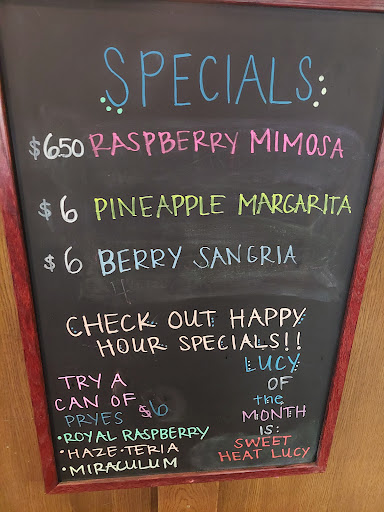 SPECIALS:
$650 RASPBERRY MIMOSA
$6 PINEAPPLE MARGARITA
$6 BERRY SANGRIA
CHECK OUT HAPPY
HOUR SPECIALS!!
TRY A
CAN OF
PRYES $6
• ROYAL RASPBERRY
• HAZE·TERIA
• MIRACULUM
LUCY
OF
the
MONTH
IS:
SWEET
HEAT LUCY